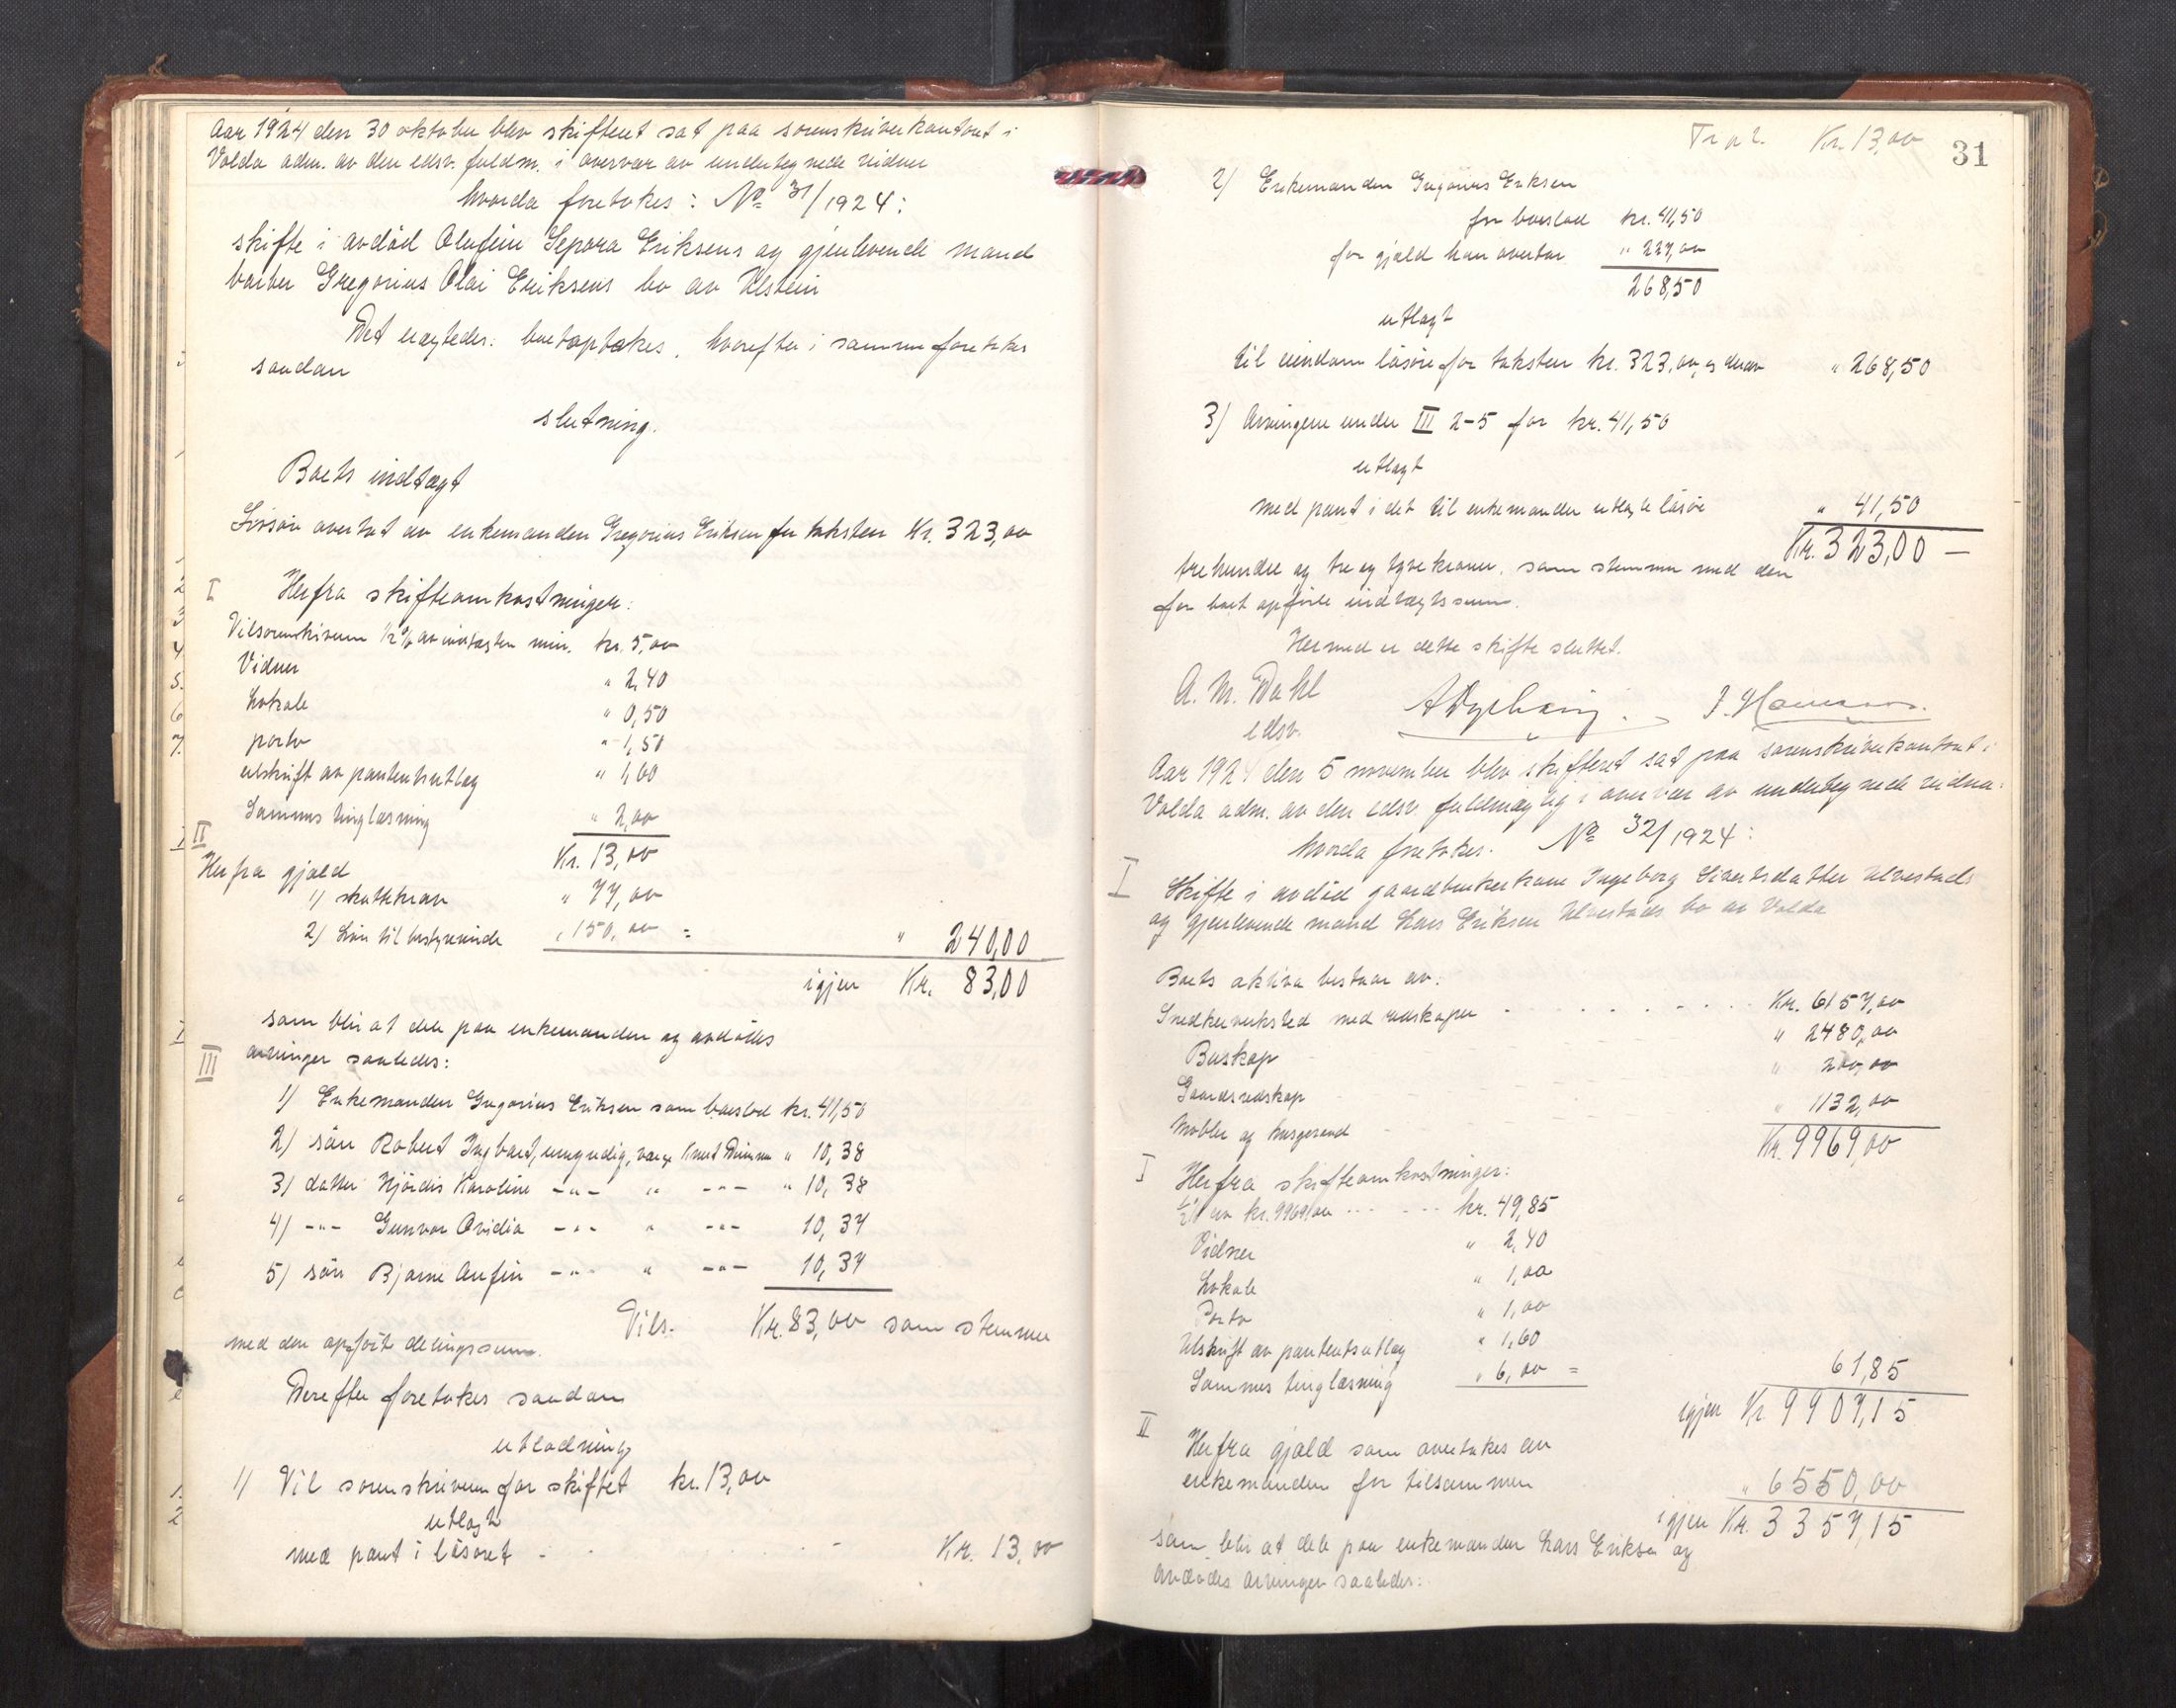 Aar 1924 den 30 oktober blev skifteret sat paa sorenskriverkontoret i
Volda adm. av den edsv. fuldm. i overvær av undertegnede vidner
hvorda foretokes: No 31/1924:
skifte i avdød Olufine Sepora Eriksens og gjenlevende mand
barber Gregorius Olai Eriksens bo av Ulstein
Det vedtoges: boet optokes, hvorefter i samme foretokes
saadan
slutning.
Boets indtægt
Løsøre overtat av enkemanden Gregorius Eriksen for taksten Kr. 323,00
I
Herfra skifteomkostninger:
Til sorenskriveren 1/2 % av indtægten min. kr. 5,00
Vidner " 2,40
Lokale " 0,50
porto " 1,50
utskrift av panteutlæg " 1,60
Sammes tinglæsning " 2,00
II
Kr. 13,00
Herfra gjæld
1) skattekrav " 77,00
2) Løn til bestyrerinde " 150,00 = " 240,00
igjen Kr. 83,00
som blir at dele paa enkemanden og avdødes
arvinger saaledes:
III
1) Enkemanden Gregorius Eriksen som boeslod kr. 41,50
2) søn Robert Ingbart, umyndig, værge Knut " 10,38
3) datter Hjørdis Karoline -"- " -"- " 10,38
4) -"- Gunvor Ovidia -"- " -"- 10,37
5) søn Bjarne Anfin -"- " -"- 10,37
Tils. Kr. 83,00 som stemmer
med den opførte delingssum.
Derefter foretokes saadan
utlodning
1) Til sorenskriveren for skiftet kr. 13,00
utlagt
med pant i løsøret - Kr. 13,00
Trp 2. Kr. 13,00
31
2) Enkemanden Gregorius Eriksen
for boeslod kr. 41,50
for gjæld han overtar " 227,00
268,50
utlagt
til eiendom løsøre for taksten kr. 323,00, og derav " 268,50
3) Arvingene under III 2-5 for kr. 41,50
utlagt
med pant i det til enkemanden utlagte løsøre " 41,50
Kr. 323,00 —
trehundre og tre og tyve kroner, som stemmer med den
for boet opførte indtægtssum.
Hermed er dette skifte sluttet.
A. M. Dahl
edsv.
Aar 1924 den 5 november blev skifteret sat paa sorenskriverkontoret i
Volda adm. av den edsv. fuldmægtig i overvær av undertegnede vidner:
hvorda foretokes: No 32/1924:
I
Skifte i avdød gaardbrukerkone Ingeborg Sivertsdatter Ulvestads
og gjenlevende mand Lars Eriksen Ulvestads bo av Volda
Boets aktiva bestaar av:
Snedkerverksted med redskaper . . . . Kr. 6157,00
Buskap " 2480,00
Gaardsredskap " 200,00
Møbler og husgeraad " 1132,00
Kr. 9969,00
I
Herfra skifteomkostninger:
1/2 % av kr. 9969,00 ... kr. 49,85
Vidner " 2,40
Lokale " 1,00
Porto " 1,00
Utskrift av panteutlæg " 1,60
Sammes tinglæsning " 6,00 = 61,85
igjen Kr. 9907,15
II
Herfra gjæld som overtokes av
enkemanden for tilsammen " 6550,00
igjen Kr. 3357,15
som blir at dele paa enkemanden Lars Eriksen og
avdødes arvinger saaledes: